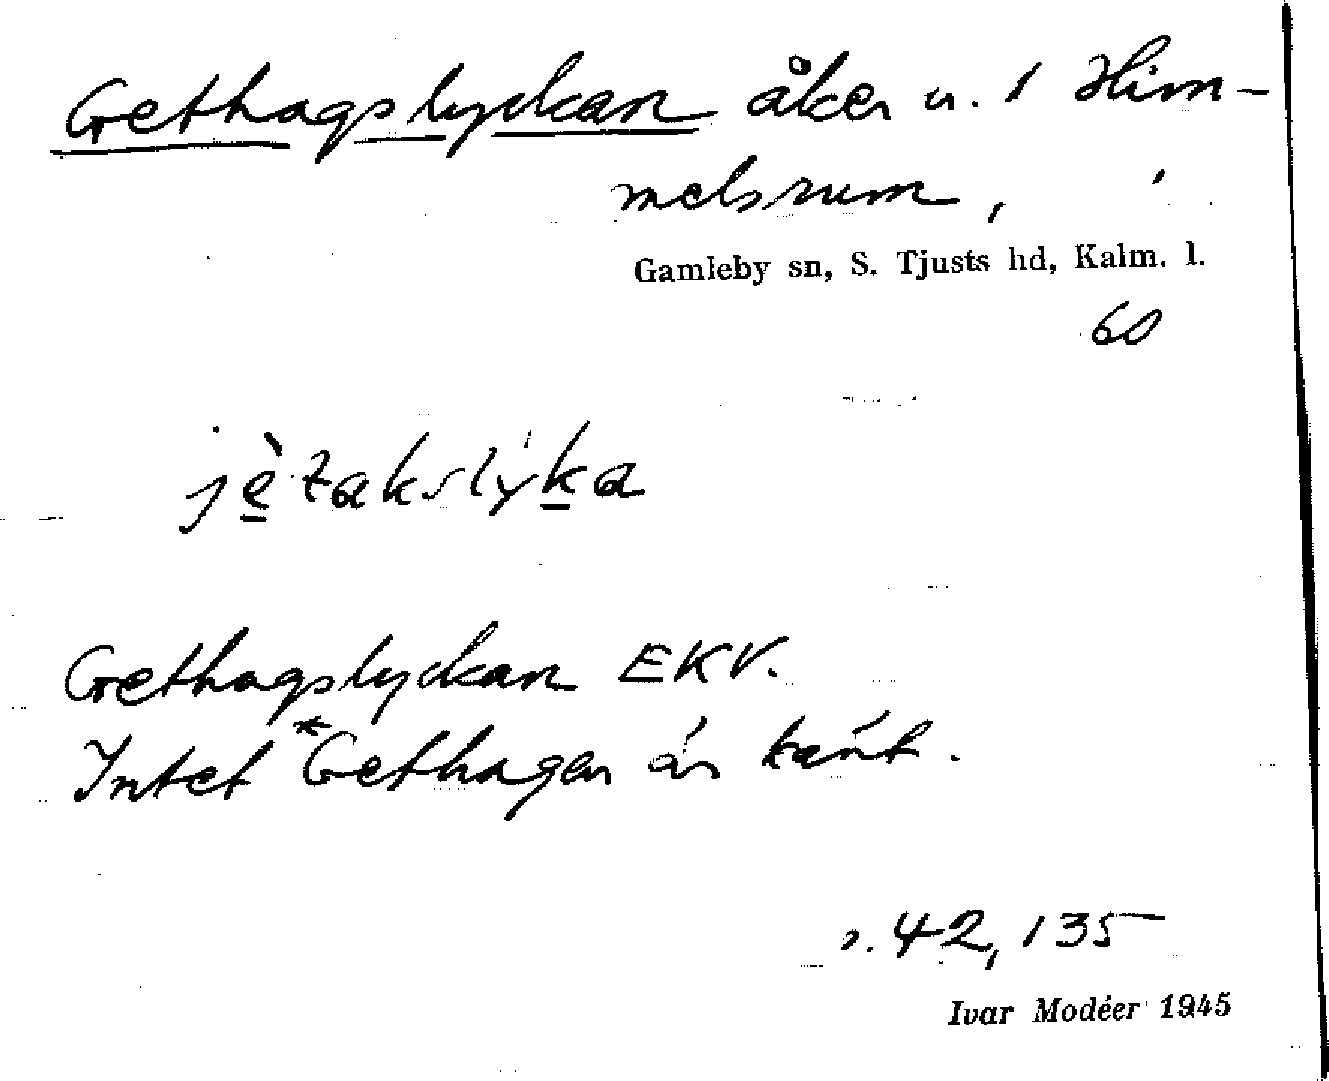 Gethagslyckan åker u. 1 Him-
melsrum,
Gamleby sn, S. Tjusts hd, Kalm. l.
60
jè̱takslýḵa
Gethagslyckan EKV.
Intet *Gethagen är känt.
s. 42, 135
Ivar Modéer 1945